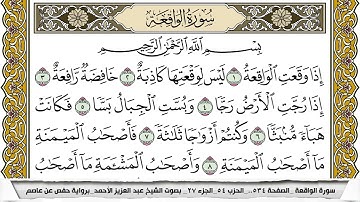 سُورَةُ الْوَاقِعَةِ
بِسْمِ اللَّهِ الرَّحْمَٰنِ الرَّحِيمِ
إِذَا وَقَعَتِ الْوَاقِعَةُ ١ لَيْسَ لِوَقْعَتِهَا كَاذِبَةٌ ٢ خَافِضَةٌ رَافِعَةٌ ٣
إِذَا رُجَّتِ الْأَرْضُ رَجًّا ٤ وَبُسَّتِ الْجِبَالُ بَسًّا ٥ فَكَانَتْ
هَبَاءً مُنْبَثًّا ٦ وَكُنْتُمْ أَزْوَاجًا ثَلَاثَةً ٧ فَأَصْحَابُ الْمَيْمَنَةِ
مَا أَصْحَابُ الْمَيْمَنَةِ ٨ وَأَصْحَابُ الْمَشْأَمَةِ مَا أَصْحَابُ
سورة الواقعة _ الصفحة ٥٣٤ _ الحزب ٥٤ _ الجزء ٢٧ _ بصوت الشيخ عبد العزيز الأحمد _ برواية حفص عن عاصم